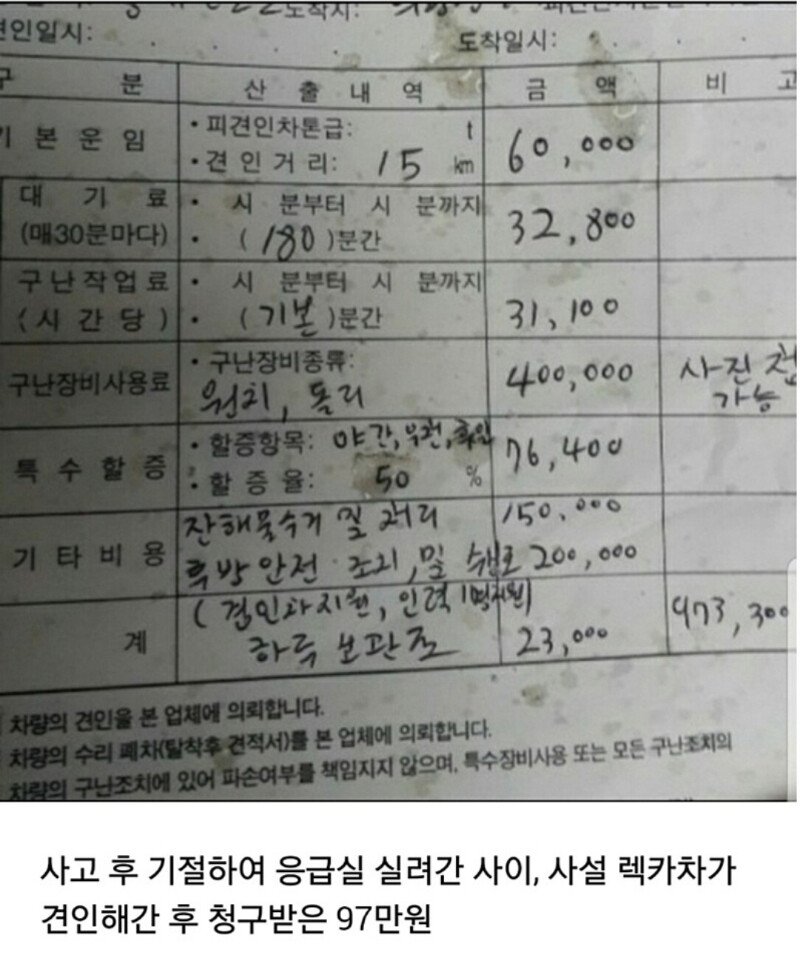 도착지:
견인일시: . . . 도착일시: . . .
구 분 산 출 내 역 금 액 비 고
기 본 운 임 • 피견인차톤급: t 60,000
• 견 인 거 리: 15 km
대 기 료 • 시 분부터 시 분까지 32,800
(매30분마다) • (180)분간
구 난 작 업 료 • 시 분부터 시 분까지 31,100
(시 간 당) • (기본)분간
구난장비사용료 • 구난장비종류: 400,000 사진 첨
윈치, 돌리 가능
특 수 할 증 • 할증항목: 야간, 우천, 휴일 76,400
• 할 증 율: 50 %
기 타 비 용 잔해물수거 및 처리 150,000
후방 안전 조치, 및 200,000
계 (견인차지원, 인력 1명지원) 973,300
하루 보관료 23,000
차량의 견인을 본 업체에 의뢰합니다.
차량의 수리 폐차(탈착후 견적서)를 본 업체에 의뢰합니다.
차량의 구난조치에 있어 파손여부를 책임지지 않으며, 특수장비사용 또는 모든 구난조치의
사고 후 기절하여 응급실 실려간 사이, 사설 렉카차가
견인해간 후 청구받은 97만원